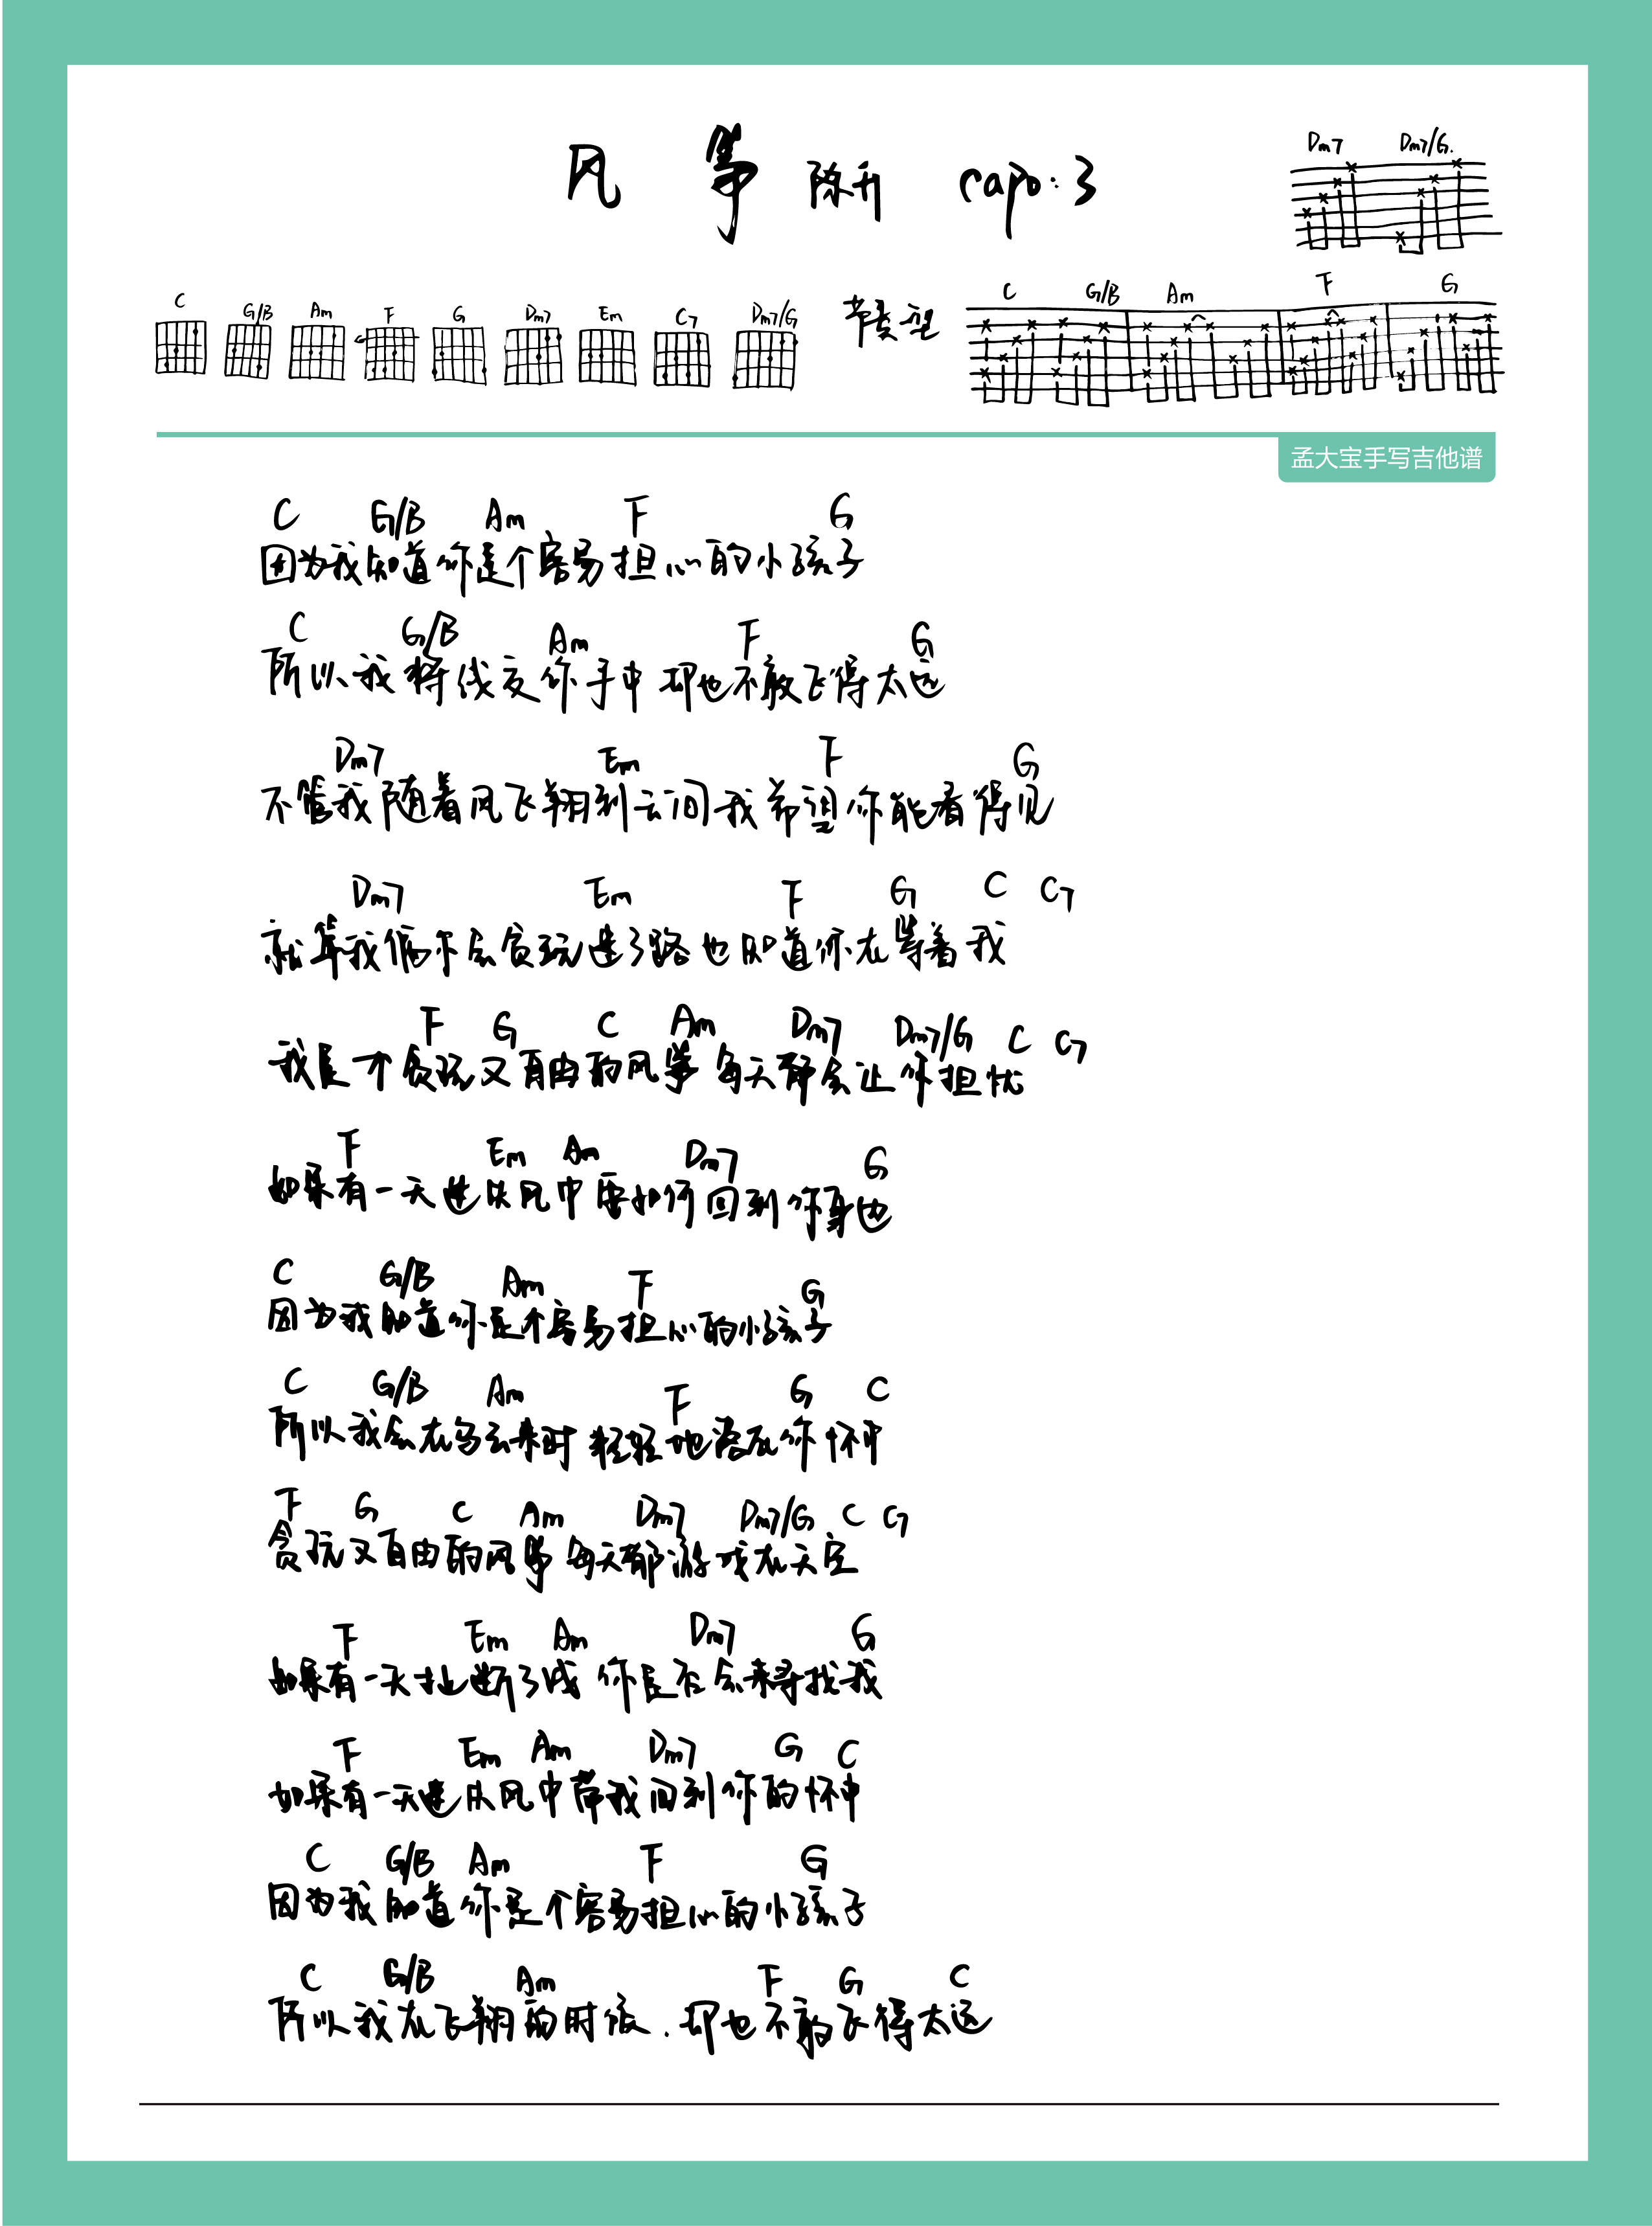 风 筝 陈升 capo:3
Dm7 Dm7/G.
C G/B Am F G Dm7 Em C7 Dm7/G 节奏型 C G/B Am F G
孟大宝手写吉他谱
C G/B Am F G
因为我知道你是个容易担心的小孩子
C G/B Am F G
所以我将线交你手中 却也不敢飞得太远
Dm7 Em F G
不管我随着风飞翔到云间我希望你能看得见
Dm7 Em F G C C7
就算我偶尔会贪玩迷了路也知道你在等着我
F G C Am Dm7 Dm7/G C C7
我是个贪玩又自由的风筝 每天都会让你担忧
F Em Am Dm7 G
如果有一天迷失风中 要如何回到你身边
C G/B Am F G
因为我知道你是个容易担心的小孩子
C G/B Am F G C
所以我会在乌云来时 轻轻地落在你怀中
F G C Am Dm7 Dm7/G C C7
贪玩又自由的风筝 每天都游戏在天空
F Em Am Dm7 G
如果有一天扯断了线 你是否会来寻找我
F Em Am Dm7 G C
如果有一天迷失风中 带我回到你的怀中
C G/B Am F G
因为我知道你是个容易担心的小孩子
C G/B Am F G C
所以我在飞翔的时候.却也不敢飞得太远